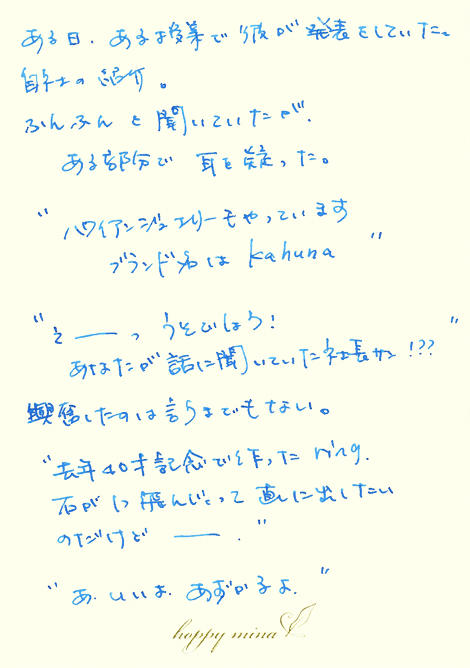 ある日、ある授業で彼が発表をしていた。
自社の紹介。
ふんふんと聞いていたが、
ある部分で 耳を疑った。
"ハワイアンジュエリーもやっています
ブランド名は kahuna"
"え——っ うそでしょう!
あなたが話に聞いていた社長サン!??"
興奮したのは言うまでもない。
"去年40才記念で作った ring.
石が1つ飛んじゃって 直しに出したい
のだけど ——."
"あ、いいよ、あずかるよ."
happy mina